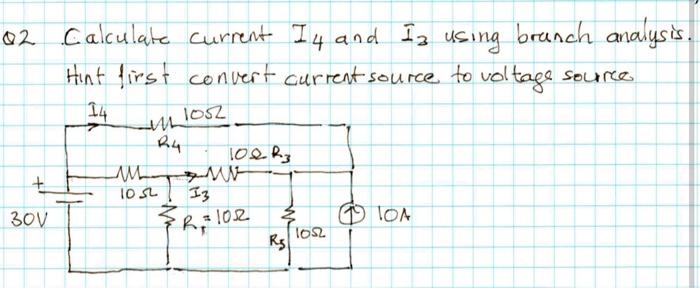 Q2 Calculate current I4 and I3 using branch analysis.
Hint first convert current source to voltage source
I4
10Ω
R4
10Ω R3
+
10Ω
I3
30V
R1 = 10Ω
10Ω
R5
10A